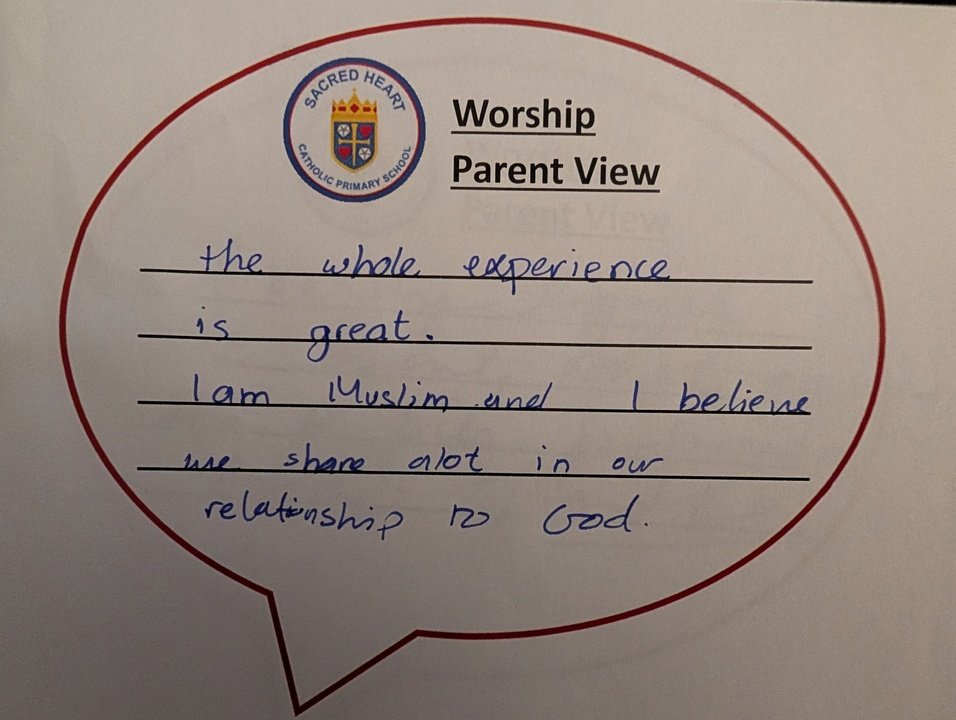 SACRED HEART
CATHOLIC PRIMARY SCHOOL
Worship
Parent View
the whole experience
is great.
I am Muslim and I believe
we share alot in our
relationship to God.